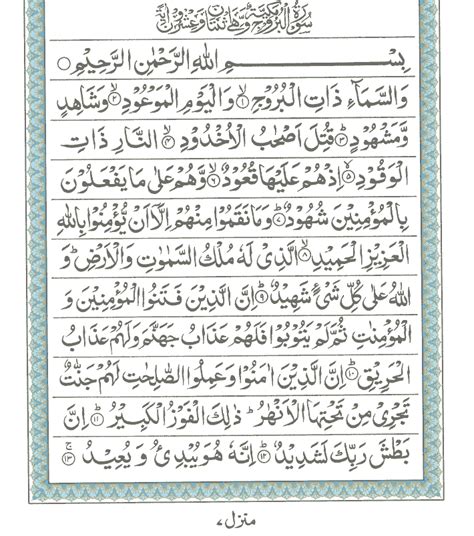 سُوْرَةُ الْبُرُوْجِ مَكِّيَّةٌ وَّهِيَ اثْنَتَانِ وَعِشْرُوْنَ اٰيَةً
بِسْمِ اللّٰهِ الرَّحْمٰنِ الرَّحِيْمِ ○
وَالسَّمَآءِ ذَاتِ الْبُرُوْجِۙ۝۱ وَالْيَوْمِ الْمَوْعُوْدِۙ۝۲ وَشَاهِدٍ
وَّمَشْهُوْدٍؕ۝۳ قُتِلَ اَصْحٰبُ الْاُخْدُوْدِۙ۝۴ النَّارِ ذَاتِ
الْوَقُوْدِۙ۝۵ اِذْ هُمْ عَلَيْهَا قُعُوْدٌۙ۝۶ وَّهُمْ عَلٰى مَا يَفْعَلُوْنَ
بِالْمُؤْمِنِيْنَ شُهُوْدٌؕ۝۷ وَمَا نَقَمُوْا مِنْهُمْ اِلَّاۤ اَنْ يُّؤْمِنُوْا بِاللّٰهِ
الْعَزِيْزِ الْحَمِيْدِۙ۝۸ الَّذِيْ لَهٗ مُلْكُ السَّمٰوٰتِ وَالْاَرْضِؕ وَ
اللّٰهُ عَلٰى كُلِّ شَيْءٍ شَهِيْدٌؕ۝۹ اِنَّ الَّذِيْنَ فَتَنُوا الْمُؤْمِنِيْنَ وَ
الْمُؤْمِنٰتِ ثُمَّ لَمْ يَتُوْبُوْا فَلَهُمْ عَذَابُ جَهَنَّمَ وَلَهُمْ عَذَابُ
الْحَرِيْقِؕ۝۱۰ اِنَّ الَّذِيْنَ اٰمَنُوْا وَعَمِلُوا الصّٰلِحٰتِ لَهُمْ جَنّٰتٌ
تَجْرِيْ مِنْ تَحْتِهَا الْاَنْهٰرُؕ ذٰلِكَ الْفَوْزُ الْكَبِيْرُؕ۝۱۱ اِنَّ
بَطْشَ رَبِّكَ لَشَدِيْدٌؕ۝۱۲ اِنَّهٗ هُوَ يُبْدِئُ وَيُعِيْدُۚ۝۱۳
منزل ۷